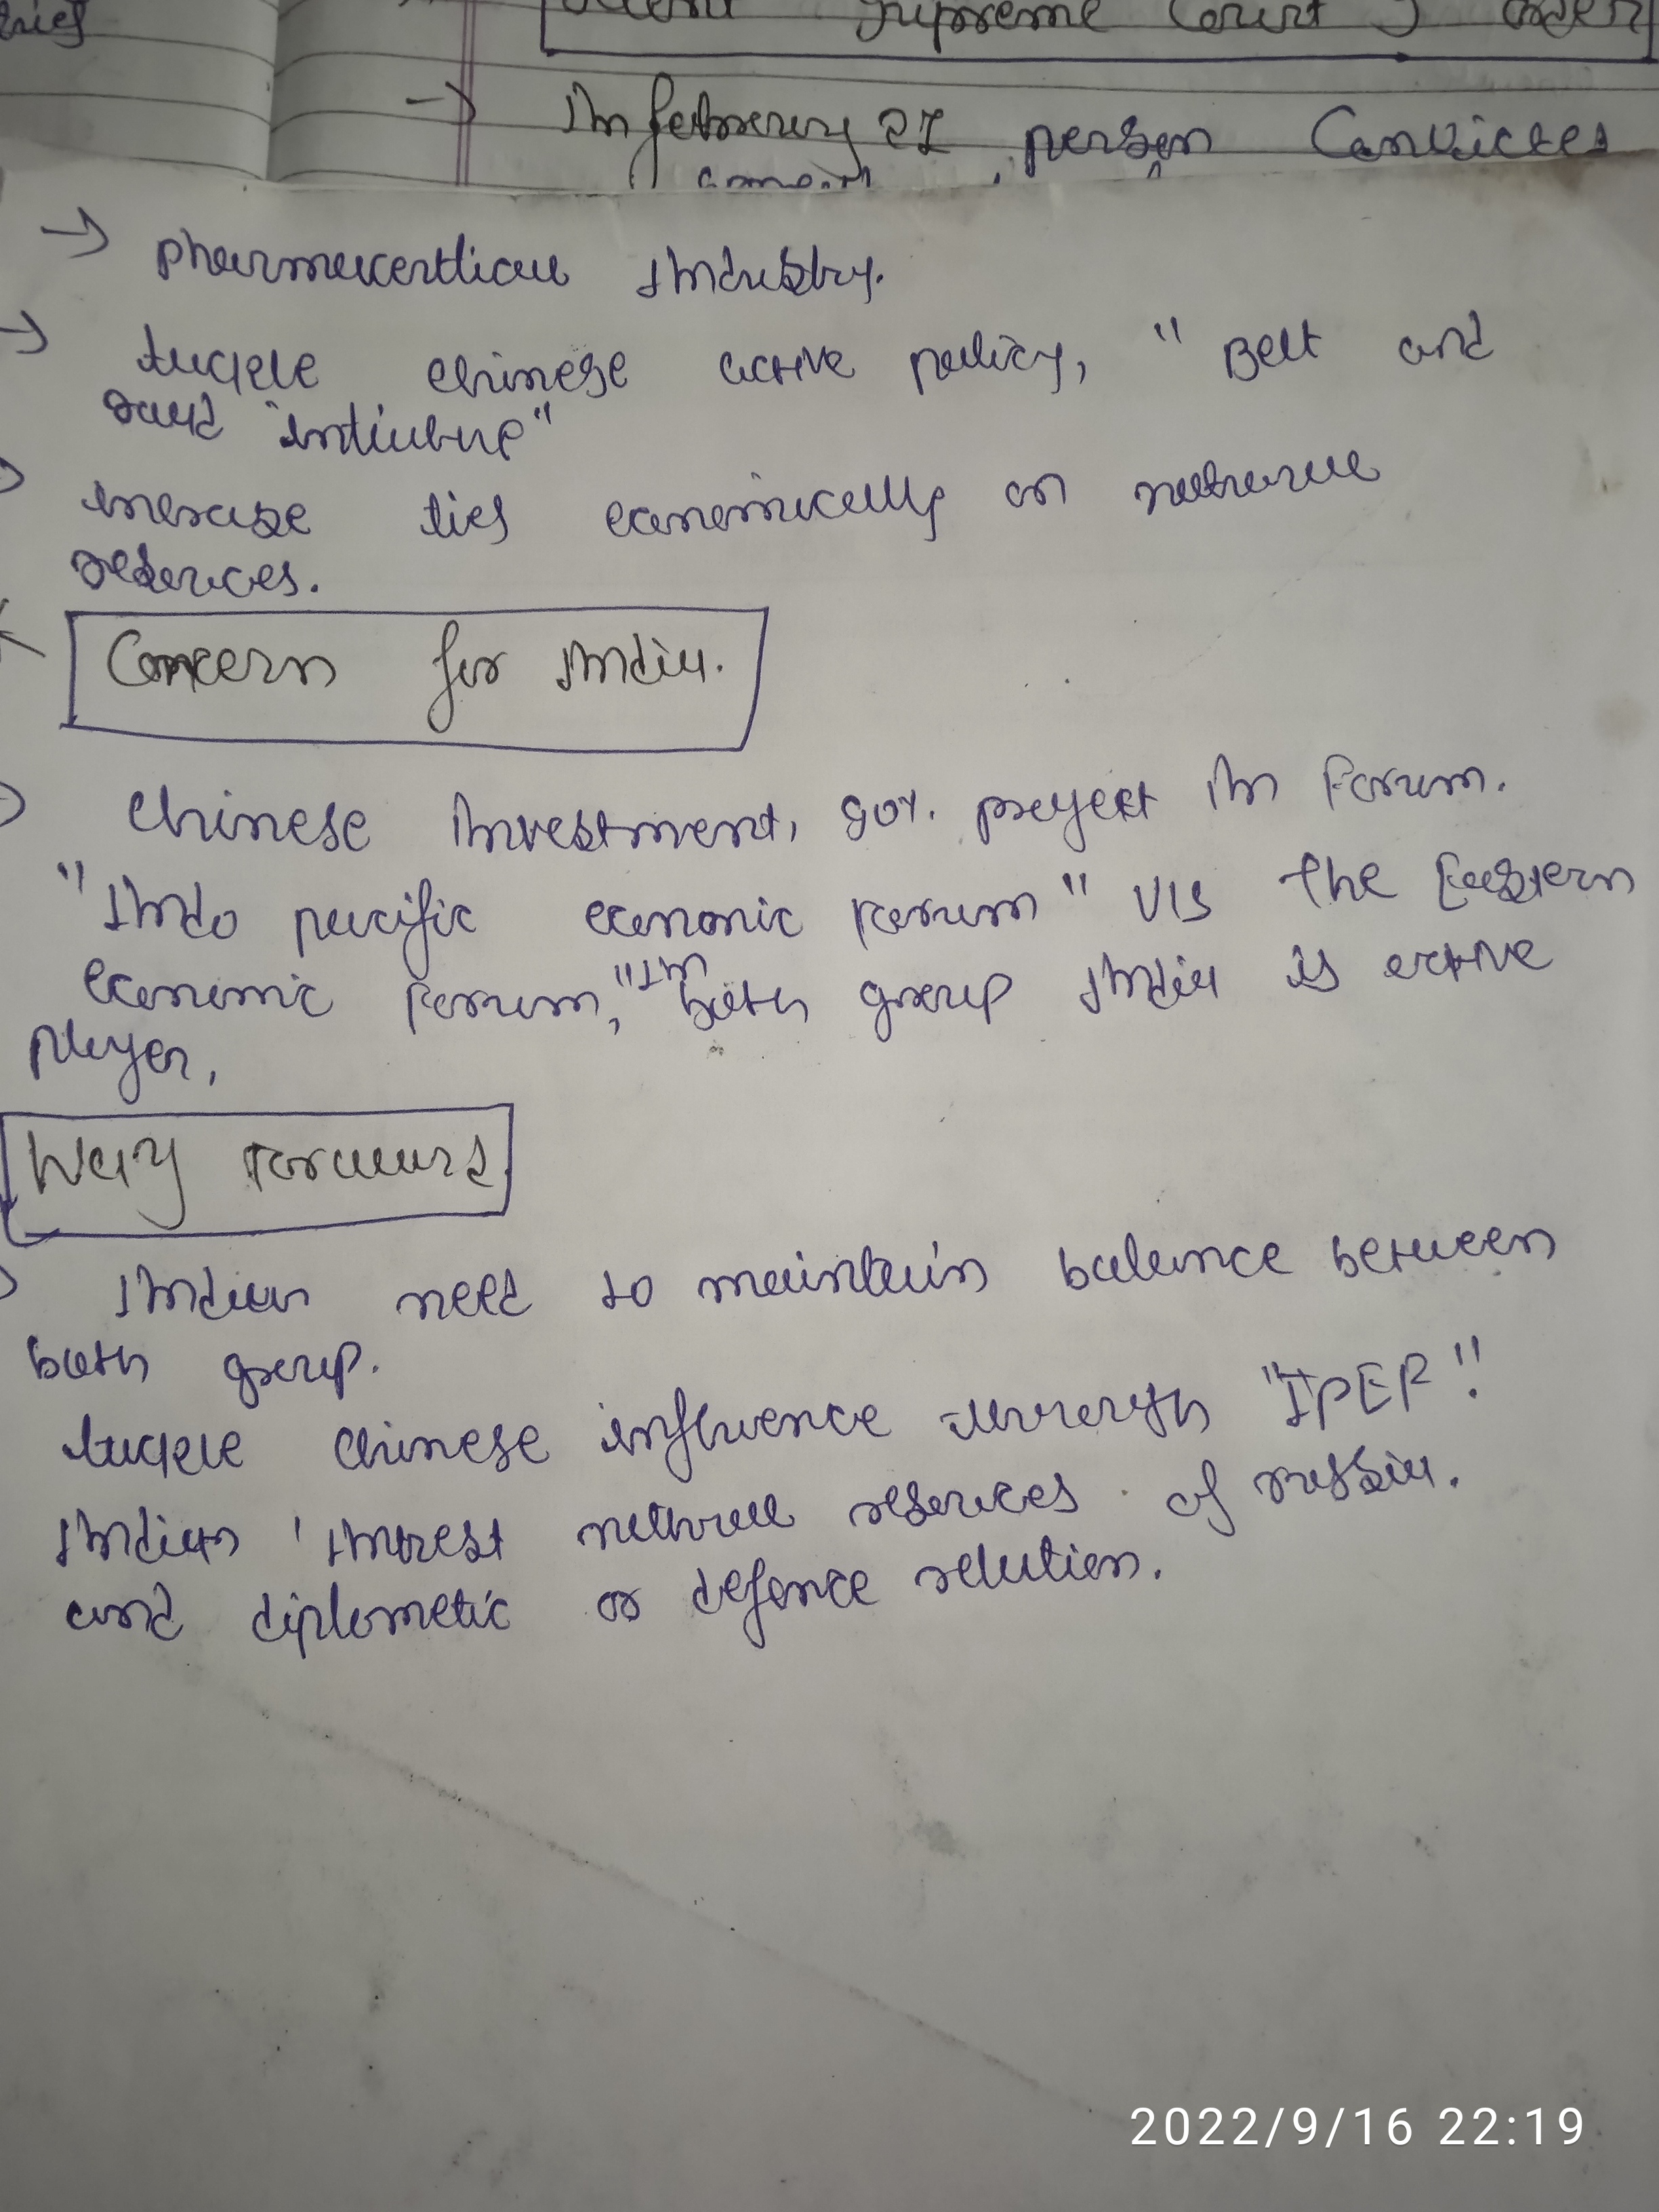 Supreme Court order
→ In february 21, person Convicted
→ pharmaceutical Industry.
→ tackle chinese active policy, " Belt and
road intiative"
increase ties economically on natural
resources.
Concern for India.
Chinese Investment, 90%. project in Forum.
"Indo pacific economic Forum" V/S The Eastern
economic Forum," In both group India is active
player,
Way Forward
Indian need to maintain balance between
both group.
tackle chinese influence through "IPEF"
Indian intrest natural resources of russia.
and diplometic or defence relation.
2022/9/16 22:19